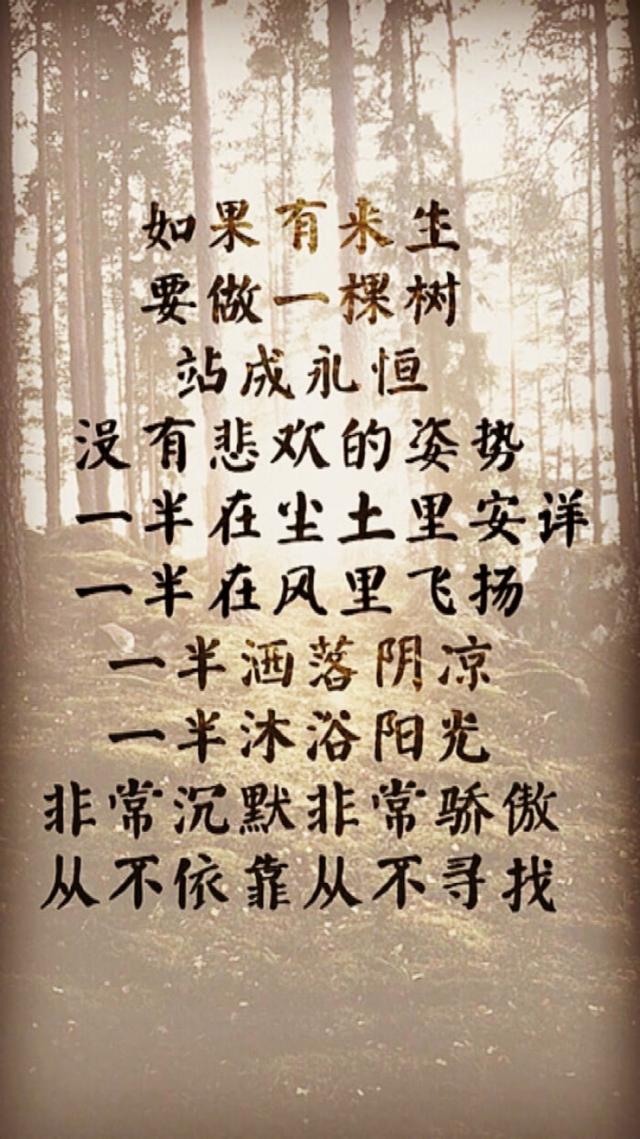 如果有来生
要做一棵树
站成永恒
没有悲欢的姿势
一半在尘土里安详
一半在风里飞扬
一半洒落阴凉
一半沐浴阳光
非常沉默非常骄傲
从不依靠从不寻找